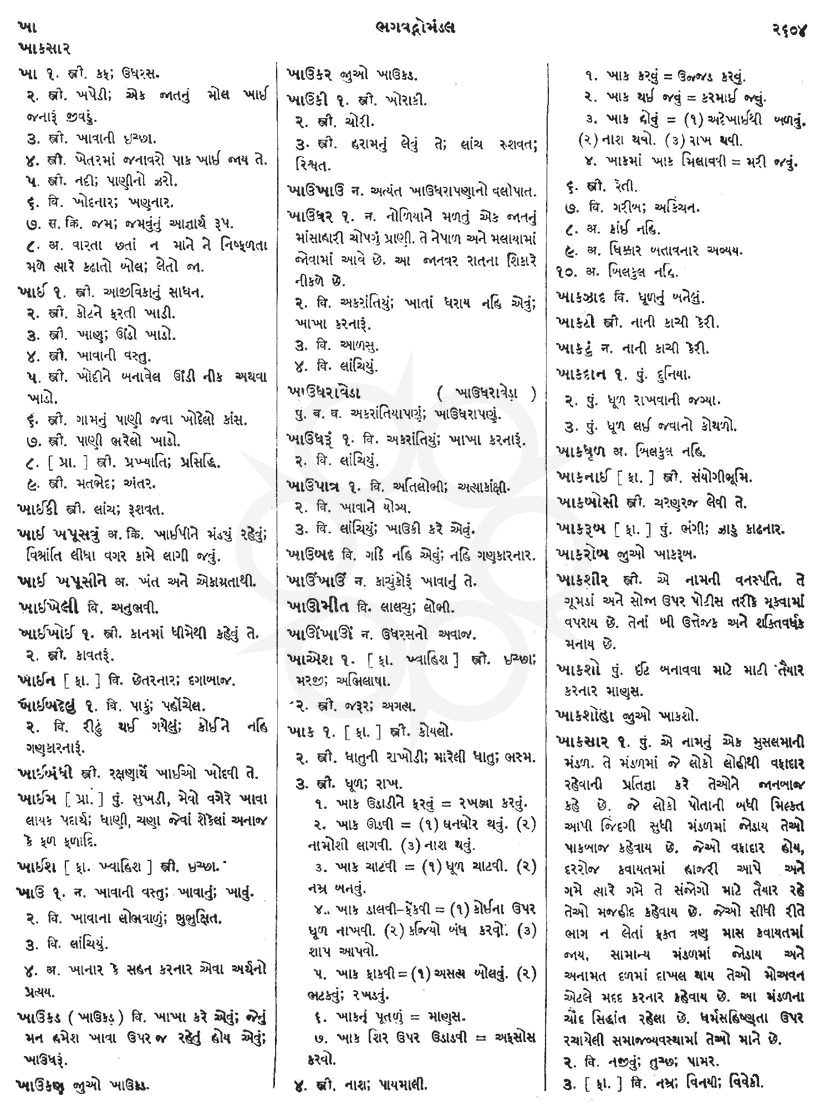 ખા
ભગવદ્ગોમંડલ
૨૬૦૪
ખાકસાર
ખા ૧. સ્ત્રી. કફ; ઉધરસ.
૨. સ્ત્રી. ખપેડી; એક જાતનું મોલ ખાઈ
જનારૂં જીવડું.
૩. સ્ત્રી. ખાવાની ઇચ્છા.
૪. સ્ત્રી. ખેતરમાં જનાવરો પાક ખાઈ જાય તે.
૫. સ્ત્રી. નદી; પાણીનો ઝરો.
૬. વિ. ખોદનાર; ખણુનાર.
૭. સ. ક્રિ. જમ; જમવુંનું આજ્ઞાર્થ રૂપ.
૮. અ. વારતા છતાં ન માને ને નિષ્ફળતા
મળે ત્યારે કઢાતો બોલ; લેતો જા.
ખાઈ ૧. સ્ત્રી. આજીવિકાનું સાધન.
૨. સ્ત્રી. કોટને ફરતી ખાડી.
૩. સ્ત્રી. ખાણુ; ઊંડો ખાડો.
૪. સ્ત્રી. ખાવાની વસ્તુ.
૫. સ્ત્રી. ખોદીને બનાવેલ ઊંડી નીક અથવા
ખાડો.
૬. સ્ત્રી. ગામનું પાણી જવા ખોદેલો કાંસ.
૭. સ્ત્રી. પાણી ભરેલો ખાડો.
૮. [ પ્રા. ] સ્ત્રી. પ્રખ્યાતિ; પ્રસિદ્ધિ.
૯. સ્ત્રી. મતભેદ; અંતર.
ખાઈકી સ્ત્રી. લાંચ; રૂશવત.
ખાઈ ખપુસવું અ. ક્રિ. ખાઈપીને મંડ્યું રહેવું;
વિશ્રાંતિ લીધા વગર કામે લાગી જવું.
ખાઈ ખપૂસીને અ. ખંત અને એકાગ્રતાથી.
ખાઈખેલી વિ. અનુભવી.
ખાઈખોઈ ૧. સ્ત્રી. કાનમાં ધીમેથી કહેવું તે.
૨. સ્ત્રી. કાવતરૂં.
ખાઈન [ ફા. ] વિ. છેતરનાર; દગાબાજ.
ખાઈબદેલું ૧. વિ. પાકું; પહોંચેલ.
૨. વિ. રીઢું થઈ ગયેલું; કોઈને નહિ
ગણુકારનારૂં.
ખાઈબંધી સ્ત્રી. રક્ષણાર્થે ખાઈઓ ખોદવી તે.
ખાઈમ [ પ્રા. ] પું. સુખડી, મેવો વગેરે ખાવા
લાયક પદાર્થ; ધાણી, ચણા જેવાં શેકેલાં અનાજ
કે ફળ ફળાદિ.
ખાઈશ [ ફા. ખ્વાહિશ ] સ્ત્રી. ઇચ્છા.
ખાઉ ૧. ન. ખાવાની વસ્તુ; ખાવાનું; ખાવું.
૨. વિ. ખાવાના લોભવાળું; બુભુક્ષિત.
૩. વિ. લાંચિયું.
૪. અ. ખાનાર કે સહન કરનાર એવા અર્થનો
પ્રત્યય.
ખાઉકડ ( ખાઉકડ઼ ) વિ. ખાખા કરે એવું; જેનું
મન હમેશ ખાવા ઉપર જ રહેતું હોય એવું;
ખાઉધરૂં.
ખાઉકણુ જીઓ ખાઉકડ.
ખાઉકર જીઓ ખાઉકડ.
ખાઉકી ૧. સ્ત્રી. ખોરાકી.
૨. સ્ત્રી. ચોરી.
૩. સ્ત્રી. હરામનું લેવું તે; લાંચ રુશવત;
રિશ્વત.
ખાઉખાઉ ન. અત્યંત ખાઉધરાપણાનો વલોપાત.
ખાઉધર ૧. ન. નોળિયાને મળતું એક જાતનું
માંસાહારી ચોપગું પ્રાણી. તે નેપાળ અને મલાયામાં
જોવામાં આવે છે. આ જાનવર રાતના શિકારે
નીકળે છે.
૨. વિ. અકરાંતિયું; ખાતાં ધરાય નહિ એવું;
ખાખા કરનારૂં.
૩. વિ. આળસુ.
૪. વિ. લાંચિયું.
ખાઉધરાવેડા ( ખાઉધરાવેડ઼ા )
પું. બ. વ. અકરાંતિયાપણું; ખાઉધરાપણું.
ખાઉધરૂં ૧. વિ. અકરાંતિયું; ખાખા કરનારૂં.
૨. વિ. લાંચિયું.
ખાઉપાત્ર ૧. વિ. અતિલોભી; અત્યાકાંક્ષી.
૨. વિ. ખાવાને યોગ્ય.
૩. વિ. લાંચિયું; ખાઉકી કરે એવું.
ખાઉબદ વિ. ગઠિ નહિ એવું; નહિ ગણુકારનાર.
ખાઉંખાઉં ન. કાચુંકોરૂં ખાવાનું તે.
ખાઊમીત વિ. લાલચુ; લોભી.
ખાઊંખાઊં ન. ઉધરસનો અવાજ.
ખાએશ ૧. [ ફા. ખ્વાહિશ ] સ્ત્રી. ઇચ્છા;
મરજી; અભિલાષા.
૨. સ્ત્રી. જરૂર; અગત્ય.
ખાક ૧. [ ફા. ] સ્ત્રી. કોયલો.
૨. સ્ત્રી. ધાતુની રાખોડી; મારેલી ધાતુ; ભસ્મ.
૩. સ્ત્રી. ધૂળ; રાખ.
૧. ખાક ઉડાડીને ફરવું = રખડ્યા કરવું.
૨. ખાક ઊડવી = (૧) ધનઘોર થવું. (૨)
નામોશી લાગવી. (૩) નાશ થવું.
૩. ખાક ચાટવી = (૧) ધૂળ ચાટવી. (૨)
નમ્ર બનવું.
૪. ખાક ડાલવી-ફેંકવી = (૧) કોઈના ઉપર
ધૂળ નાખવી. (૨) કજિયો બંધ કરવો. (૩)
શાપ આપવો.
૫. ખાક ફાકવી = (૧) અસત્ય બોલવું. (૨)
ભટકવું; રખડવું.
૬. ખાકનું પૂતળું = માણસ.
૭. ખાક શિર ઉપર ઉડાડવી = અફસોસ
કરવો.
૪. સ્ત્રી. નાશ; પાયમાલી.
૧. ખાક કરવું = ઉજ્જડ કરવું.
૨. ખાક થઈ જવું = કરમાઈ જવું.
૩. ખાક હોવું = (૧) અદેખાઈથી બળવું.
(૨) નાશ થવો. (૩) રાખ થવી.
૪. ખાકમાં ખાક મિલાવવી = મરી જવું.
૬. સ્ત્રી. રેતી.
૭. વિ. ગરીબ; અકિંચન.
૮. અ. કાંઈ નહિ.
૯. અ. ધિક્કાર બતાવનાર અવ્યય.
૧૦. અ. બિલકુલ નહિ.
ખાકઝાદ વિ. ધૂળનું બનેલું.
ખાકટી સ્ત્રી. નાની કાચી કેરી.
ખાકટું ન. નાની કાચી કેરી.
ખાકદાન ૧. પું. દુનિયા.
૨. પું. ધૂળ રાખવાની જગ્યા.
૩. પું. ધૂળ લઈ જવાનો કોથળો.
ખાકધૂળ અ. બિલકુલ નહિ.
ખાકનાઈ [ ફા. ] સ્ત્રી. સંયોગીભૂમિ.
ખાકબોસી સ્ત્રી. ચરણરજ લેવી તે.
ખાકરૂબ [ ફા. ] પું. ભંગી; ઝાડુ કાઢનાર.
ખાકરોબ જીઓ ખાકરૂબ.
ખાકશીર સ્ત્રી. એ નામની વનસ્પતિ. તે
ગૂમડાં અને સોજા ઉપર પોટીસ તરીકે મૂકવામાં
વપરાય છે. તેનાં બી ઉત્તેજક અને શક્તિવર્ધક
મનાય છે.
ખાકશો પું. ઈંટ બનાવવા માટે માટી તૈયાર
કરનાર માણુસ.
ખાકશોહા જીઓ ખાકશો.
ખાકસાર ૧. પું. એ નામનું એક મુસલમાની
મંડળ. તે મંડળમાં જે લોકો લોહીથી વફાદાર
રહેવાની પ્રતિજ્ઞા કરે તેઓને જાનબાજ
કહે છે. જે લોકો પોતાની બધી મિલ્કત
આપી જિંદગી સુધી મંડળમાં જોડાય તેઓ
પાકબાજ કહેવાય છે. જેઓ વફાદાર હોય,
દરરોજ કવાયતમાં હાજરી આપે અને
ગમે ત્યારે ગમે તે સંજોગો માટે તૈયાર રહે
તેઓ મજહીદ કહેવાય છે. જેઓ સીધી રીતે
ભાગ ન લેતાં ફક્ત ત્રણુ માસ કવાયતમાં
જાય, સામાન્ય મંડળમાં જોડાય અને
અનામત દળમાં દાખલ થાય તેઓ મોઅવન
એટલે મદદ કરનાર કહેવાય છે. આ મંડળના
ચૌદ સિદ્ધાંત રહેલા છે. ધર્મસહિષ્ણુતા ઉપર
રચાયેલી સમાજવ્યવસ્થામાં તેઓ માને છે.
૨. વિ. નજીવું; તુચ્છ; પામર.
૩. [ ફા. ] વિ. નમ્ર; વિનયી; વિવેકી.